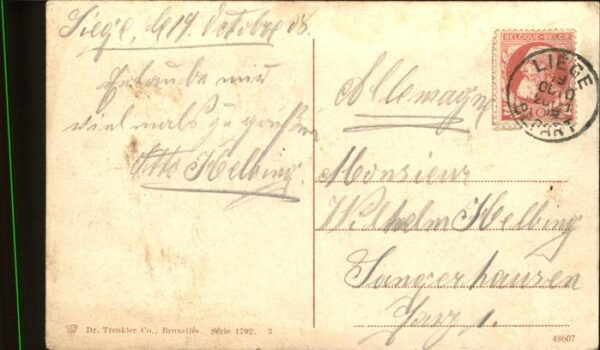 Liege, le 19. October 08.
Erlaube mir
vielmals zu grüßen
Otto Helbing.
BELGIQUE-BELGIË
10
LIÈGE
DEPART
Allemagne
Monsieur
Wilhelm Helbing
Sangerhausen
Harz
Dr. Trenkler Co., Bruxelles. Série 1792. 3
48607